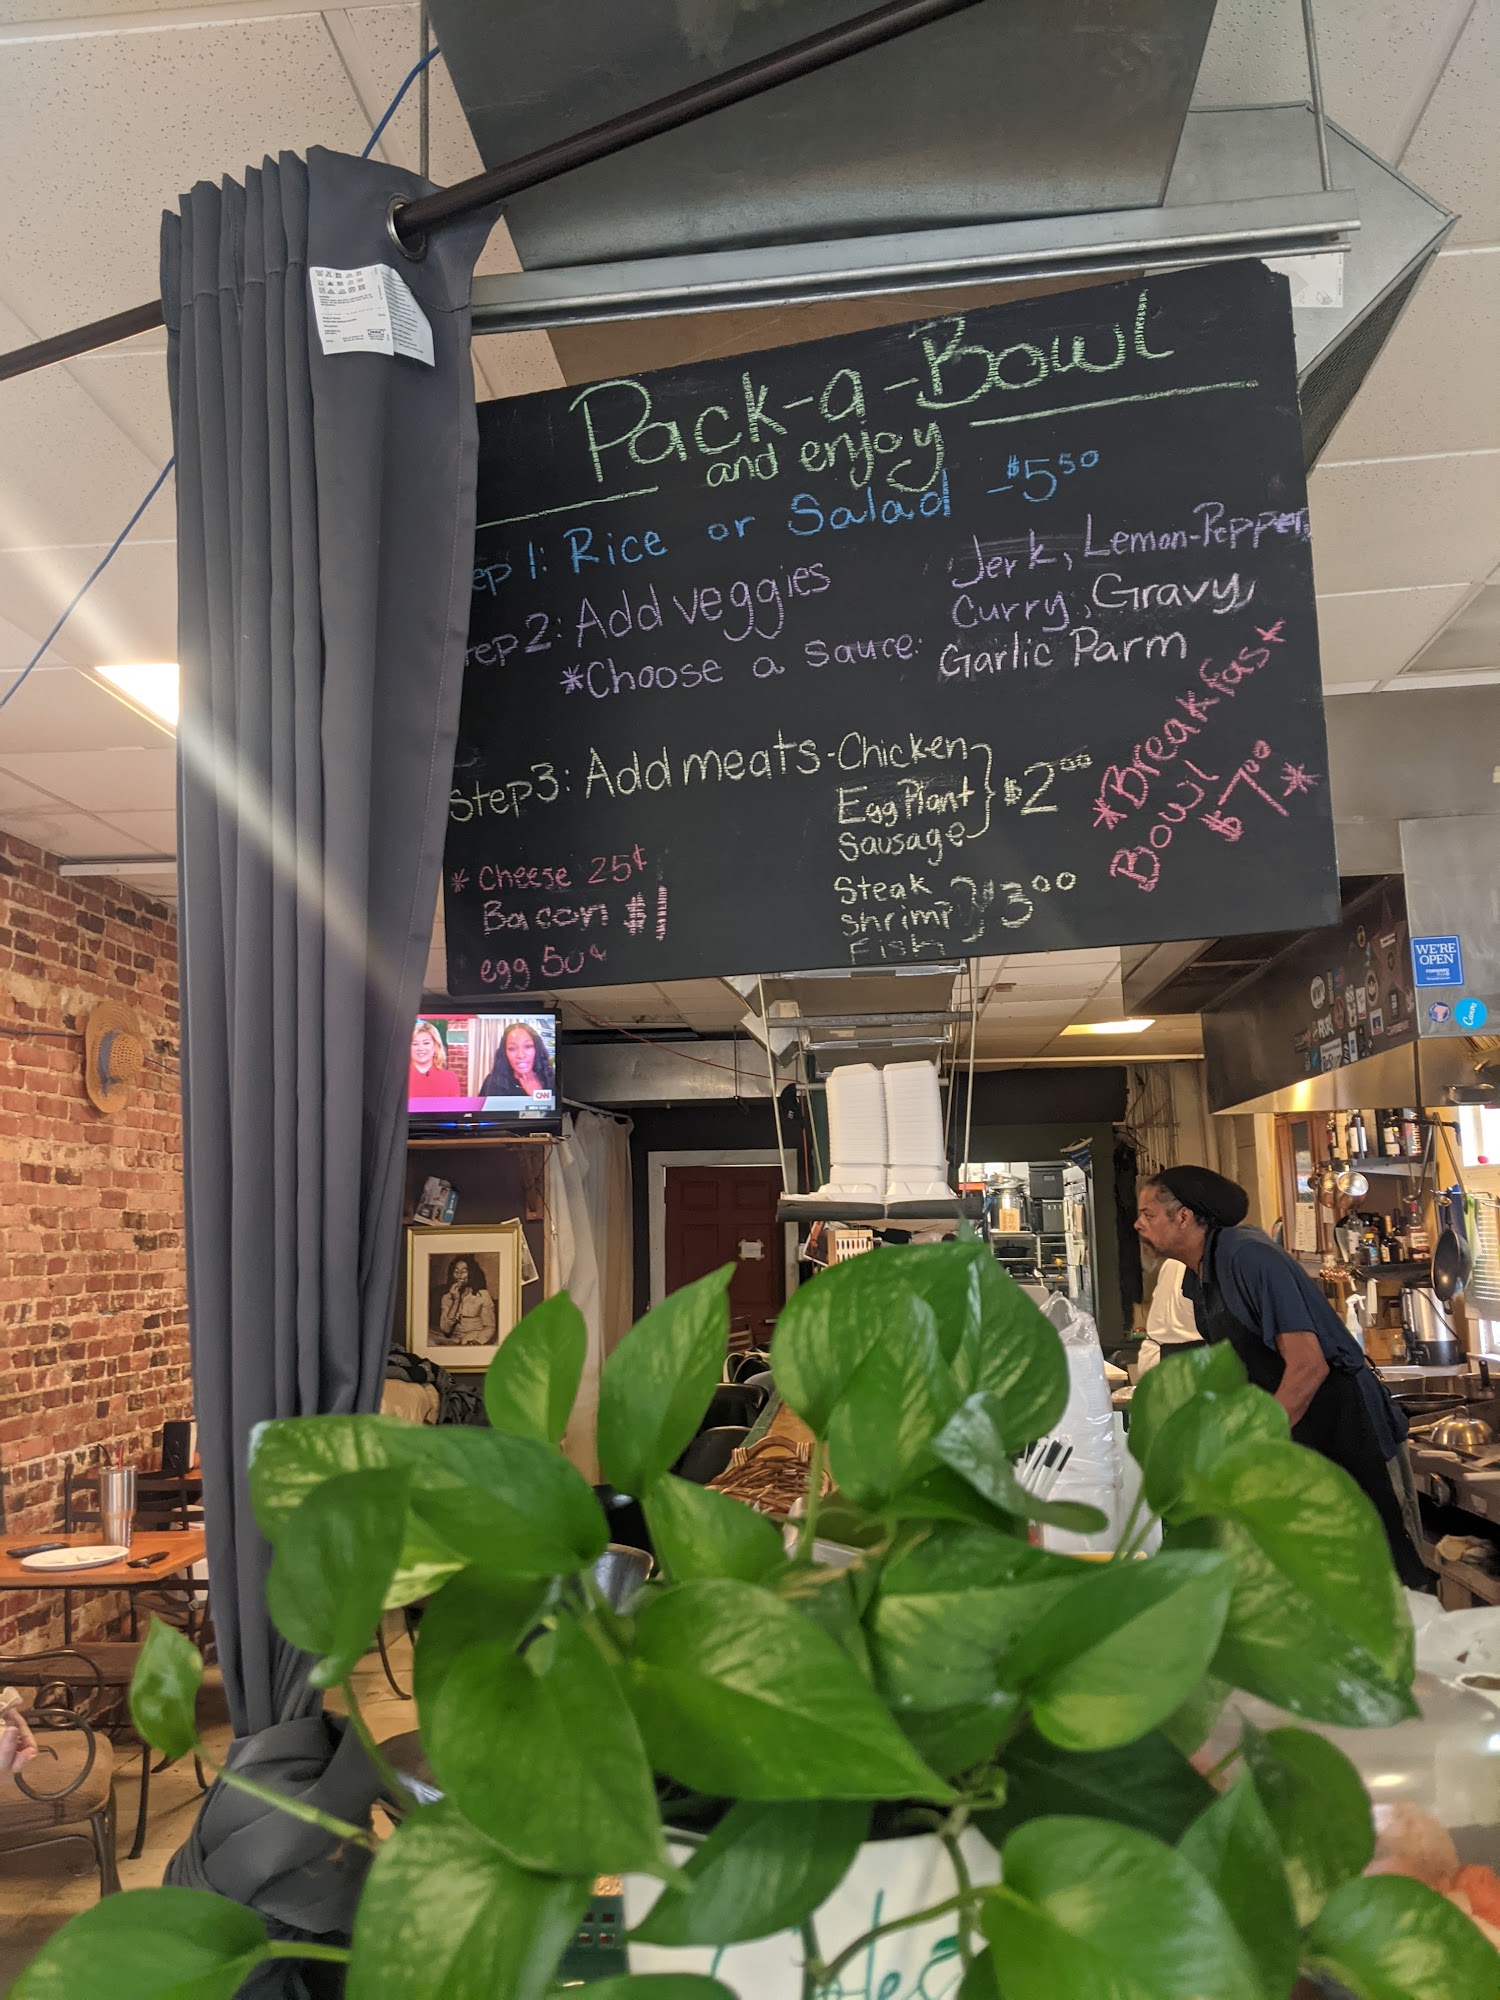 Pack-a-Bowl
and enjoy
ep 1: Rice or Salad - $5 50
tep 2: Add veggies
*Choose a sauce: Jerk, Lemon-Pepper,
Curry, Gravy,
Garlic Parm
Step 3: Add meats - Chicken
Egg Plant
Sausage
$2 00
Steak
Shrimp
Fish
$3 00
* Cheese 25¢
Bacon $1
egg 50¢
*Breakfast
Bowl
$7 00*
WE'RE
OPEN
CNN
JVC